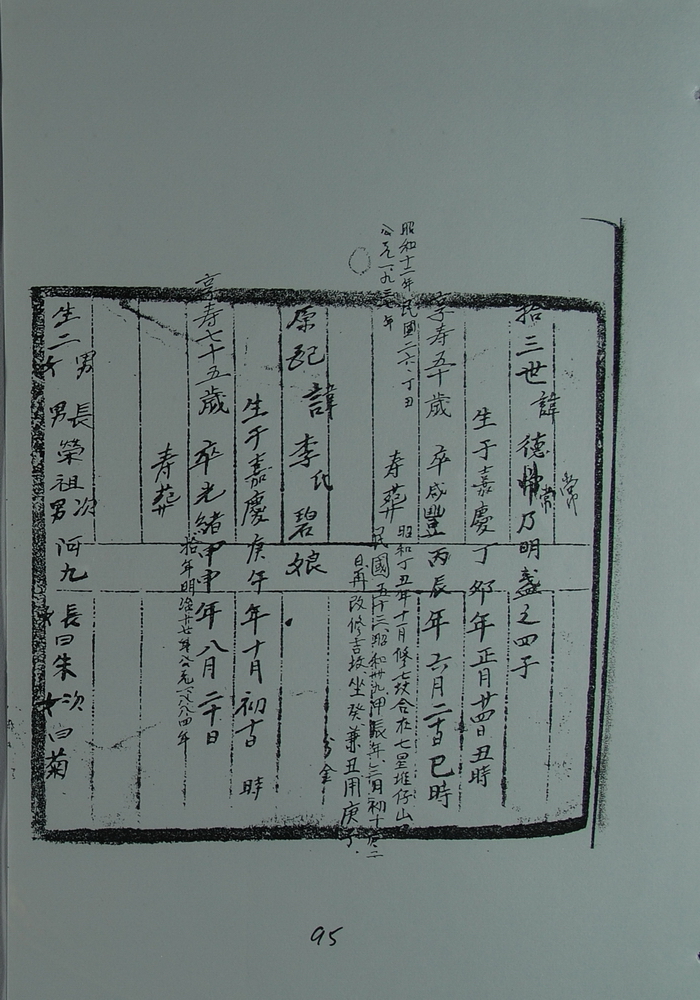 常
拾三世 諱 德常 乃明盏之四子
常
生于嘉慶丁卯年正月廿四日丑時
享寿五十歲 卒咸豐丙辰年六月二十日巳時
昭和十二年 民國二六 丁丑
公元一九三七年
寿葬
昭和丁丑年十一月修坟合在七星堆仔山
民國五十三 昭和卅九 甲辰年 月初十
日再改修吉坟坐癸兼丑用庚子
分金
原配 諱 李氏碧娘
生于嘉慶庚午年十月初 時
享寿七十五歲 卒光緒甲申年八月二十日
拾年明治十七年公元一八八四年
寿葬
生二男 長男榮祖 次男阿九
二女 長女曰朱 次女曰菊
95